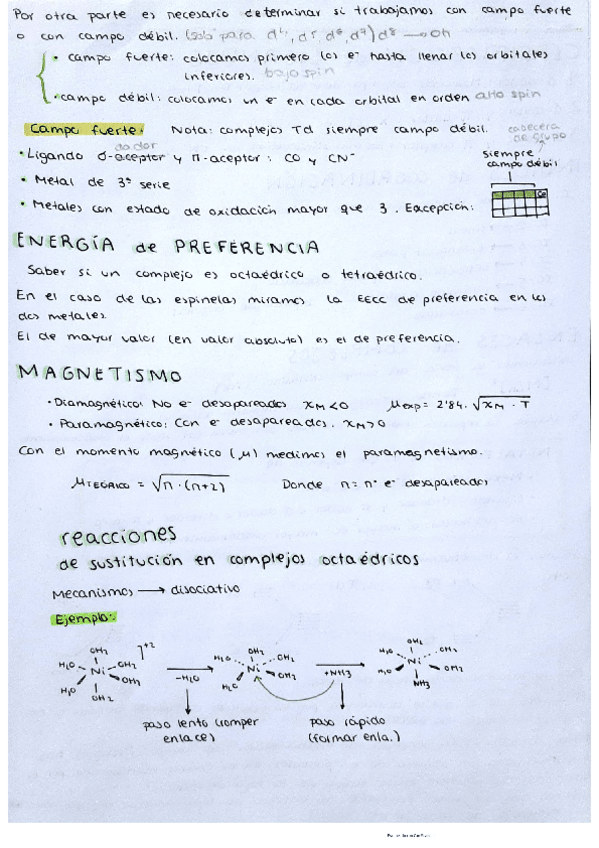 Por otra parte es necesario determinar si trabajamos con campo fuerte
o con campo débil. (solo para d⁴, d⁵, d⁶, d⁷) d⁸ → Oh
• campo fuerte: colocamos primero los e⁻ hasta llenar los orbitales
inferiores. bajo spin
• campo débil: colocamos un e⁻ en cada orbital en orden alto spin
Campo fuerte: Nota: complejos Td siempre campo débil.
cabecera de grupo
dador
• Ligando σ-aceptor y π-aceptor: CO y CN⁻
siempre campo débil
• Metal de 3ª serie
• Metales con estado de oxidación mayor que 3. Eacepción:
ENERGÍA de PREFERENCIA
Saber si un complejo es octaédrico o tetraédrico.
En el caso de las espinelas miramos la EECC de preferencia en los
dos metales.
El de mayor valor (en valor absoluto) es el de preferencia.
MAGNETISMO
• Diamagnético: No e⁻ desapareados χM<0 μexp = 2'84. √χM · T
• Paramagnético: Con e⁻ desapareados. χM>0
Con el momento magnético (μ) medimos el paramagnetismo.
μTEÓRICO = √n · (n+2) Donde n = nº e⁻ desapareados
reacciones
de sustitución en complejos octaédricos
Mecanismos → disociativo
Ejemplo:
OH₂ ]⁺² OH₂ OH₂
H₂O OH₂ H₂O OH₂ H₂O OH₂
Ni −H₂O Ni +NH₃ Ni
H₂O OH₂ H₂O OH₂ H₂O OH₂
OH₂ NH₃
paso lento (romper paso rápido
enlace) (formar enla.)